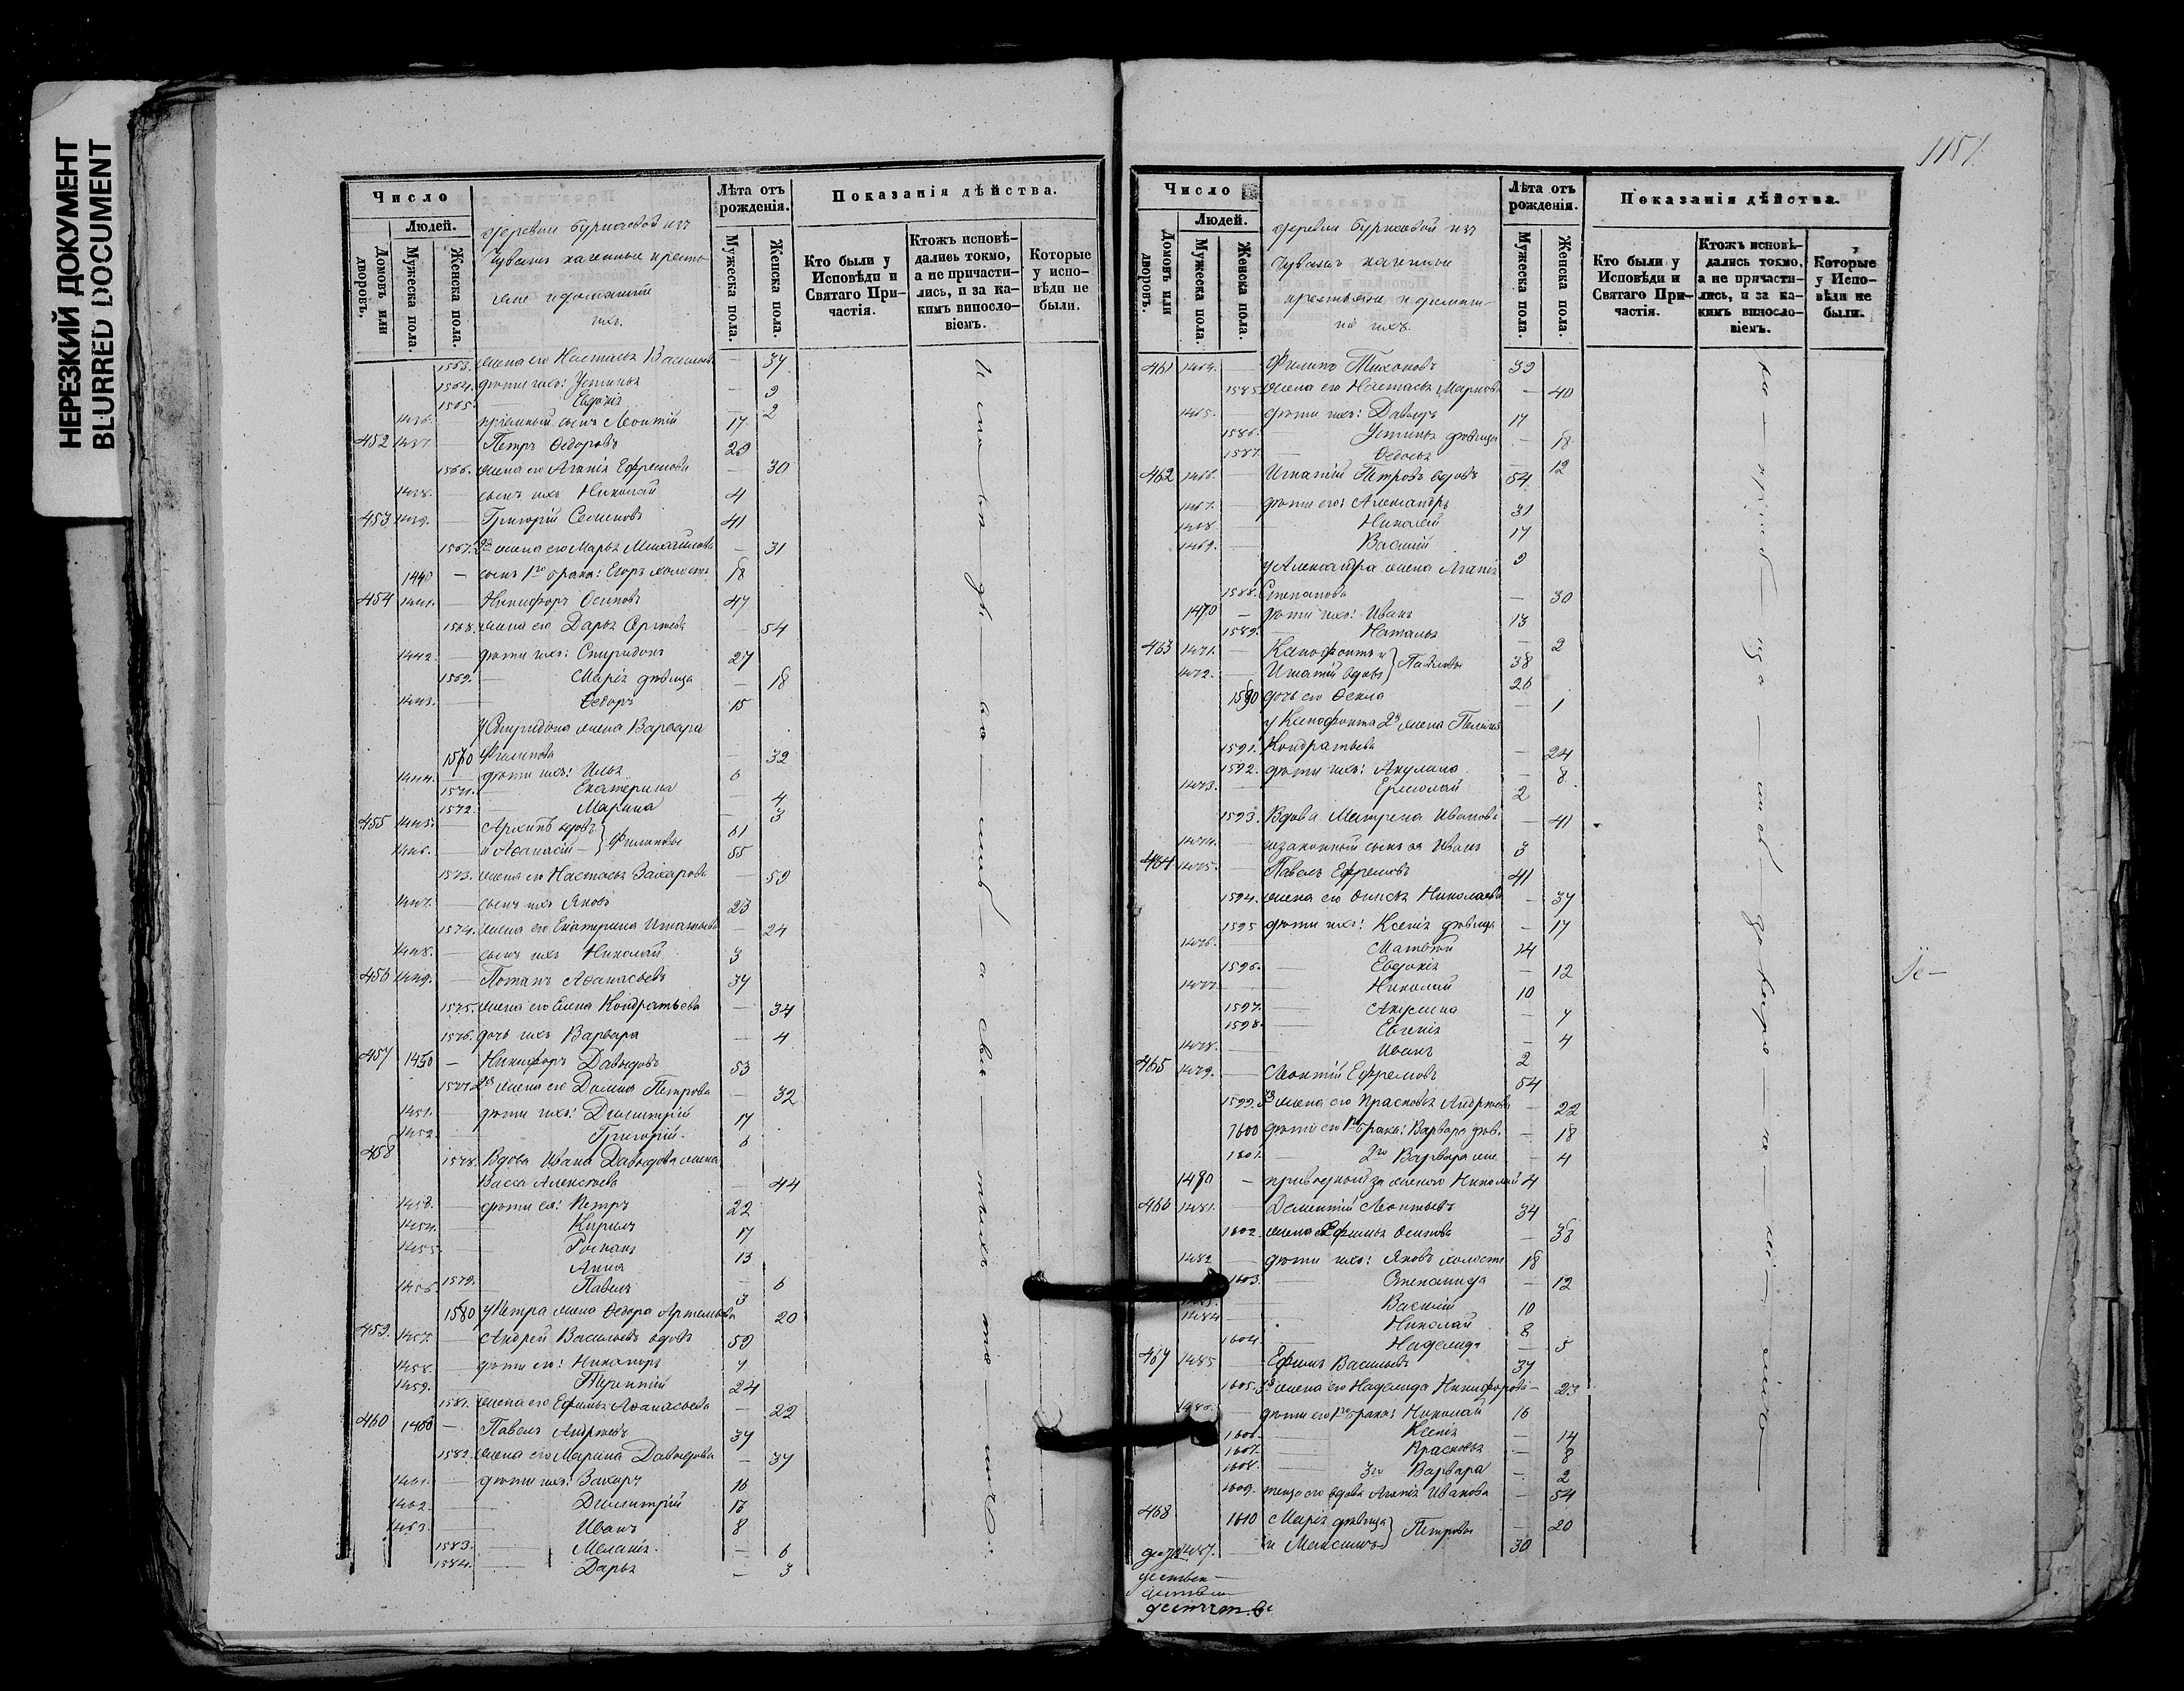 НЕРЕЗКИЙ ДОКУМЕНТ
BLURRED DOCUMENT
Число
Людей.
Домовъ или дворовъ.
Мужеска пола.
Женска пола.
Лѣта отъ рожденія.
Мужеска пола.
Женска пола.
Показанія дѣйства.
Кто были у Исповѣди и Святаго Причастія.
Ктожъ исповѣдались токмо, а не причастились, и за какимъ винословіемъ.
Которые у исповѣди не были.
деревни изъ
Чувашъ казенные кресть-
яне и домашніи
ихъ.
1563. жена его Настасья Васильева — 37
1564. дѣти ихъ: Устинья — 9
1565. Евдокія — 2
1436. — пріемный сынъ Леонтій 17
452 1437. — Петръ Ѳедоровъ 29
1566. жена его Агапія Ефремова — 30
1438. — сынъ ихъ Николай 4
453 1439. — Григорій Семеновъ 41
1567. 2я жена его Марья Михайлова — 31
1440 — сынъ 1го брака: Егоръ холостъ 18
454 1441. — Никифоръ Осиповъ 47
1568. жена его Дарья Сергѣева — 54
1442. — дѣти ихъ: Спиридонъ 27
1569. — Марія дѣвица — 18
1443. — Ѳедоръ 15
у Спиридона жена Варвара
1570 Филипова — 32
1444. — дѣти ихъ: Илья 6
1571. — Екатерина — 4
1572. — Марина — 3
455 1445. — Архипъ вдовъ 61
1446. — и Аѳанасій — Филиповы 55
1573. жена его Настасья Захарова — 59
1447. — сынъ ихъ Яковъ 23
1574. жена его Екатерина Игнатьева — 24
1448. — сынъ ихъ Николай 3
456 1449. — Потапъ Аѳанасьевъ 37
1575. жена его Елена Кондратьева — 34
1576. дочь ихъ Варвара — 4
457 1450 — Никифоръ Давыдовъ 53
1577. 2я жена его Домна Петрова — 32
1451. — дѣти ихъ: Димитрій 17
1452. — Григорій 6
458 1578. Вдова Ивана Давыдова жена
Васса Алексѣева — 44
1453. — дѣти ея: Петръ 22
1454. — Кирилъ 17
1455. — Романъ 13
1579. — Анна — 6
1456. — Павелъ 3
1580 у Петра жена Ѳедора Артемьева 20
459. 1457. — Андрей Васильевъ вдовъ 59
1458. — дѣти его: Никаноръ 7
1459. — Терентій 24
1581. жена его Ефимья Аѳанасьева — 22
460 1460 — Павелъ Андреевъ 37
1582. жена его Марина Давыдова — 37
1461. — дѣти ихъ: Захаръ 16
1462. — Димитрій 13
1463. — Иванъ 8
1583. — Меланія — 6
1584. — Дарья — 3
1151
Число
Людей.
Домовъ или дворовъ.
Мужеска пола.
Женска пола.
Лѣта отъ рожденія.
Мужеска пола.
Женска пола.
Показанія дѣйства.
Кто были у Исповѣди и Святаго Причастія.
Ктожъ исповѣдались токмо, а не причастились, и за какимъ винословіемъ.
Которые у Исповѣди не были.
деревни изъ
Чувашъ казенные
крестьяне и домаш-
ніи ихъ.
461 1464. — Филипъ Тихоновъ 39
1585. жена его Настасья Маркова — 40
1465. — дѣти ихъ: Давыдъ 17
1586. Устинья дѣвица — 18
1587. — Ѳедосья — 12
462 1466. — Игнатій Петровъ вдовъ 54
1467. — дѣти его: Александръ 31
1468. Николай 17
1469. — Василій 9
у Александра жена Агапія
1588. Степанова — 30
1470 — дѣти ихъ: Иванъ 13
1589. — Наталья — 2
463 1471. — Ксенофонтъ и 38
1472. — Игнатій вдовъ Павловы 26
1590 дочь его Ѳекла — 1
у Ксенофонта 2я жена Пелагія
1591. Кондратьева — 24
1592. дѣти ихъ: Акулина — 8
1473. — Ермолай 2
1593. Вдова Матрена Иванова — 41
1474. — незаконный сынъ ея Иванъ 3
464 1475. — Павелъ Ефремовъ 41
1594. жена его Николаева — 37
1595 дѣти ихъ: Ксенія дѣвица — 17
1476. — Матвѣй 14
1596. — Евдокія — 12
1477. — Николай 10
1597. — Акулина — 7
1598. — Евгенія — 4
1478. — Иванъ 2
465 1479. — Леонтій Ефремовъ 54
1599. 3я жена его Прасковья Андреева — 22
1600 дѣти его 1го брака: Варвара дѣв. — 18
1601. — 2го Варвара — 4
1480 — приводный за женою Николай 4
466 1481. — Дементій Леонтьевъ 34
1602. жена Ефимья Осипова — 38
1482 — дѣти ихъ: Яковъ холостъ 18
1603. — Степанида — 12
Василій 10
1484 Николай 8
1604. — Надежда — 5
467 1485 — Ефимъ Васильевъ 37
1605. 3я жена его Надежда Никифорова — 23
1486. — дѣти его 1го брака: Николай 16
1606. — Ксенія — 14
1607. — Прасковья — 8
1608. — 3го Варвара — 2
1609. теща его вдова Агапія Иванова — 54
468 1610 Марія дѣвица — 20
1487. — и Максимъ Петровы 30